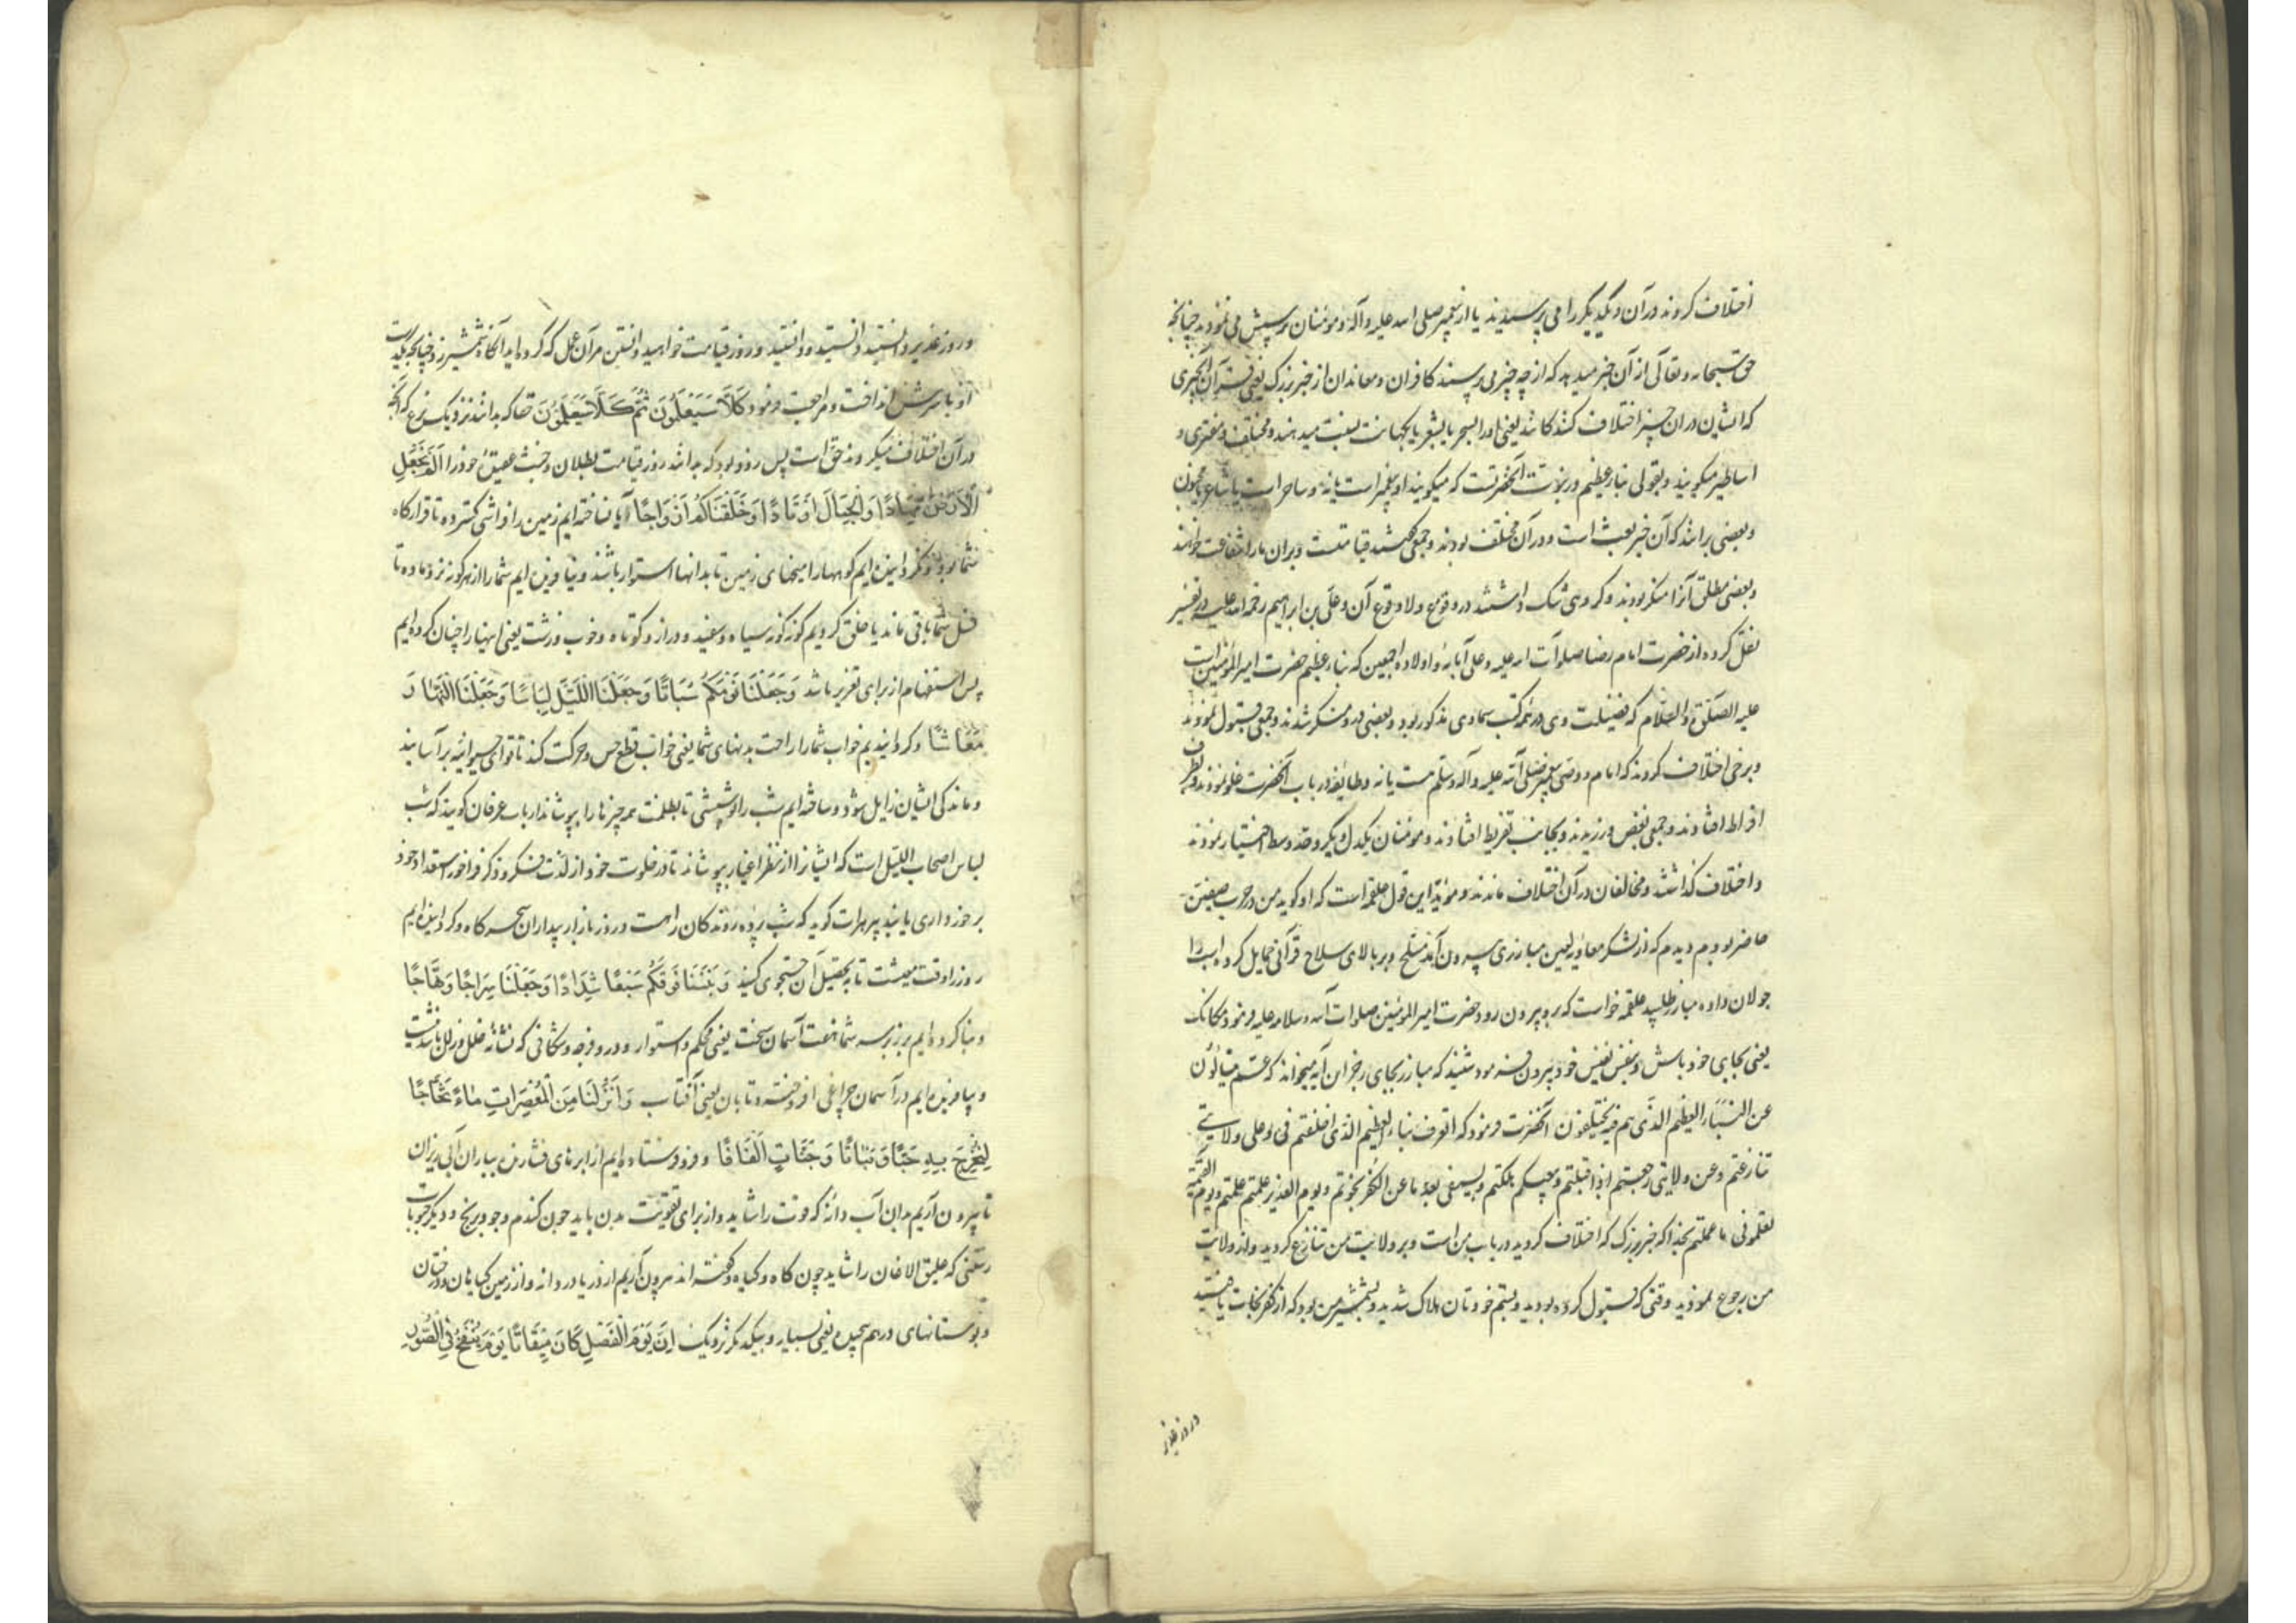 اختلاف کردند در آن و یکدیگر را می پرسیدند یا از پیغمبر صلی الله علیه و آله و مومنان پرسش می نمودند چنانچه
حق سبحانه و تعالی از آن خبر میدهد که از چه چیز می پرسند کافران و معاندان از خبر بزرگ یعنی قرآن آنچیزی
که ایشان در ان چیز اختلاف کنندکانند یعنی اورا بسحر یا بشعر یا بکهانت نسبت میدهند و مختلف و مفتری و
اساطیر میکویند و بقولی نباء عظیم در نبوت آنحضرتست که میکویند او پیغمبر است یا نه و ساحر است یا شاعر یا مجنون
و بعضی برانند که آن خبر بعث است و در آن مختلف بودند و جمعی کفتند قیامتست و بران مارا شفاعت خواهند
و بعضی مطلق آنرا منکر بودند و کروهی شک داشتند در وقوع و لا وقوع آن و علی بن ابراهیم رحمه الله علیه در تفسیر
نقل کرده از حضرت امام رضا صلوات الله علیه و علی آبائه و اولاده اجمعین که نباء عظیم حضرت امیر المؤمنین است
علیه الصلوة و السلام که فضیلت وی در همه کتب سماوی مذکور بود و بعضی در و منکر شدند و جمعی قبول نمودند
و برخی اختلاف کردند که امام و وصی پیغمبر صلی الله علیه و آله و سلم هست یا نه و طایفه در باب آنحضرت غلو نمودند و بطرف
افراط افتادند و جمعی بغض ورزیدند و بجانب تفریط افتادند و مومنان یکدل و یکرو حد وسط اختیار نمودند
و اختلاف کذاشتند و مخالفان در آن اختلاف ماندند و موید این قول علقمه است که او کوید من در حرب صفین
حاضر بودم دیدم که از لشکر معاویه لعین مبارزی بیرون آمد مسلح و بر بالای سلاح قرآنی حمایل کرده اسب را
جولان داده مبارز طلبید علقمه خواست که برو بیرون رود حضرت امیر المومنین صلوات الله و سلامه علیه فرمود مکانک
یعنی بجای خود باش و بنفس نفیس خود بیرون فرمود شنید که مبارز بجای رجز ان آیه میخواند که عم یتسائلون
عن النباء العظیم الذی هم فیه مختلفون آنحضرت فرمود که اتعرف نباء العظیم الذی اختلفتم فی و علی ولایتی
تنازعتم و عن ولایتی رجعتم بعد اذ قبلتم و ببغیکم هلکتم و بسیفی بعد ما عن الکفر نجوتم و یوم الغدیر علمتم علمتم و یوم القیمة
تعلمونی ما عملتم بخدا که خبر بزرک که اختلاف کردید در باب من است و بر ولایت من تنازع کردید و از ولایت
من رجوع نمودید وقتی که قبول کرده بودید و بستم خودتان هلاک شدید و بشمشیر من بود که از کفر نجات یافتید
و روز غدیر
و روز غدیر دانستید دانستید و دانستید و روز قیامت خواهید دانستن مر آن عمل که کرده اید آنکاه شمشیر زد چنانچه بیکدست
او با سرش انداخت و مراجعت فرمود کَلَّا سَیَعْلَمُونَ ثُمَّ کَلَّا سَیَعْلَمُونَ حقا که بدانند نزدیک نزع که آنچه
در آن اختلاف میکردند حق است پس زود بود که بدانند روز قیامت بطلان و خبث عقیق خود را اَلَمْ نَجْعَلِ
الْاَرْضَ مِهَادًا وَالْجِبَالَ اَوْتَادًا وَخَلَقْنَاکُمْ اَزْوَاجًا آیا نساخته ایم زمین را فراشی کسترده تا قرارکاه
شما بود و نکردانیده ایم کوهها را میخهای زمین تا بدانها استوار باشد و بیافریده ایم شما را از هر کونه نر و ماده تا
نسل شما باقی ماند یا خلق کردیم کونه کونه سیاه و سفید و دراز و کوتاه و خوب و زشت یعنی اینها را چنان کرده ایم
پس استفهام از برای تقریر باشد وَجَعَلْنَا نَوْمَکُمْ سُبَاتًا وَجَعَلْنَا اللَّیْلَ لِبَاسًا وَجَعَلْنَا النَّهَارَ
مَعَاشًا و کردانیدیم خواب شما را راحت بدنهای شما یعنی خواب قطع حس و حرکت کند تا قوای حیوانیه بر آسایند
و ماندکی ایشان زایل شود و ساخته ایم شب را پوششی تا بظلمت همه چیزها را بپوشاند ارباب عرفان کویند که شب
لباس اصحاب اللیل است که ایشانرا از نظر اغیار بپوشاند تا در خلوت خود از لذت فکر و ذکر فراخور استعداد خود
برخورداری یابند پیر هرات کوید که شب پرده روندکان راهست و روز بازار بیداران سحرکاه و کردانیده ایم
روز را وقت معیشت تا به تحصیل آن جستجوی کنید وَبَنَیْنَا فَوْقَکُمْ سَبْعًا شِدَادًا وَجَعَلْنَا سِرَاجًا وَهَّاجًا
و بنا کرده ایم بر زبر سر شما هفت آسمان سخت یعنی محکم و استوار و در و فرجه و شکافی که نشانه خلل و زلل باشد نیست
و بیافریده ایم در آسمان چراغی افروخته و تابان یعنی آفتاب وَاَنْزَلْنَا مِنَ الْمُعْصِرَاتِ مَاءً ثَجَّاجًا
لِنُخْرِجَ بِهِ حَبًّا وَنَبَاتًا وَجَنَّاتٍ اَلْفَافًا و فرو فرستاده ایم از ابرهای فشارنده بباران آبی ریزان
تا بیرون آریم بدان آب دانه که قوت را شاید و از برای تقویت بدن باید چون کندم و جو و برنج و دیکر حبوبات
رستنی که علیق الاغان را شاید چون کاه و کیاه و کفته اند بیرون آریم از دریا دردانه و از زمین کیاهان و درختان
و بوستانهای درهم پیچیده یعنی بسیار و بیکدیکر نزدیک اِنَّ یَوْمَ الْفَصْلِ کَانَ مِیقَاتًا یَوْمَ یُنْفَخُ فِی الصُّورِ